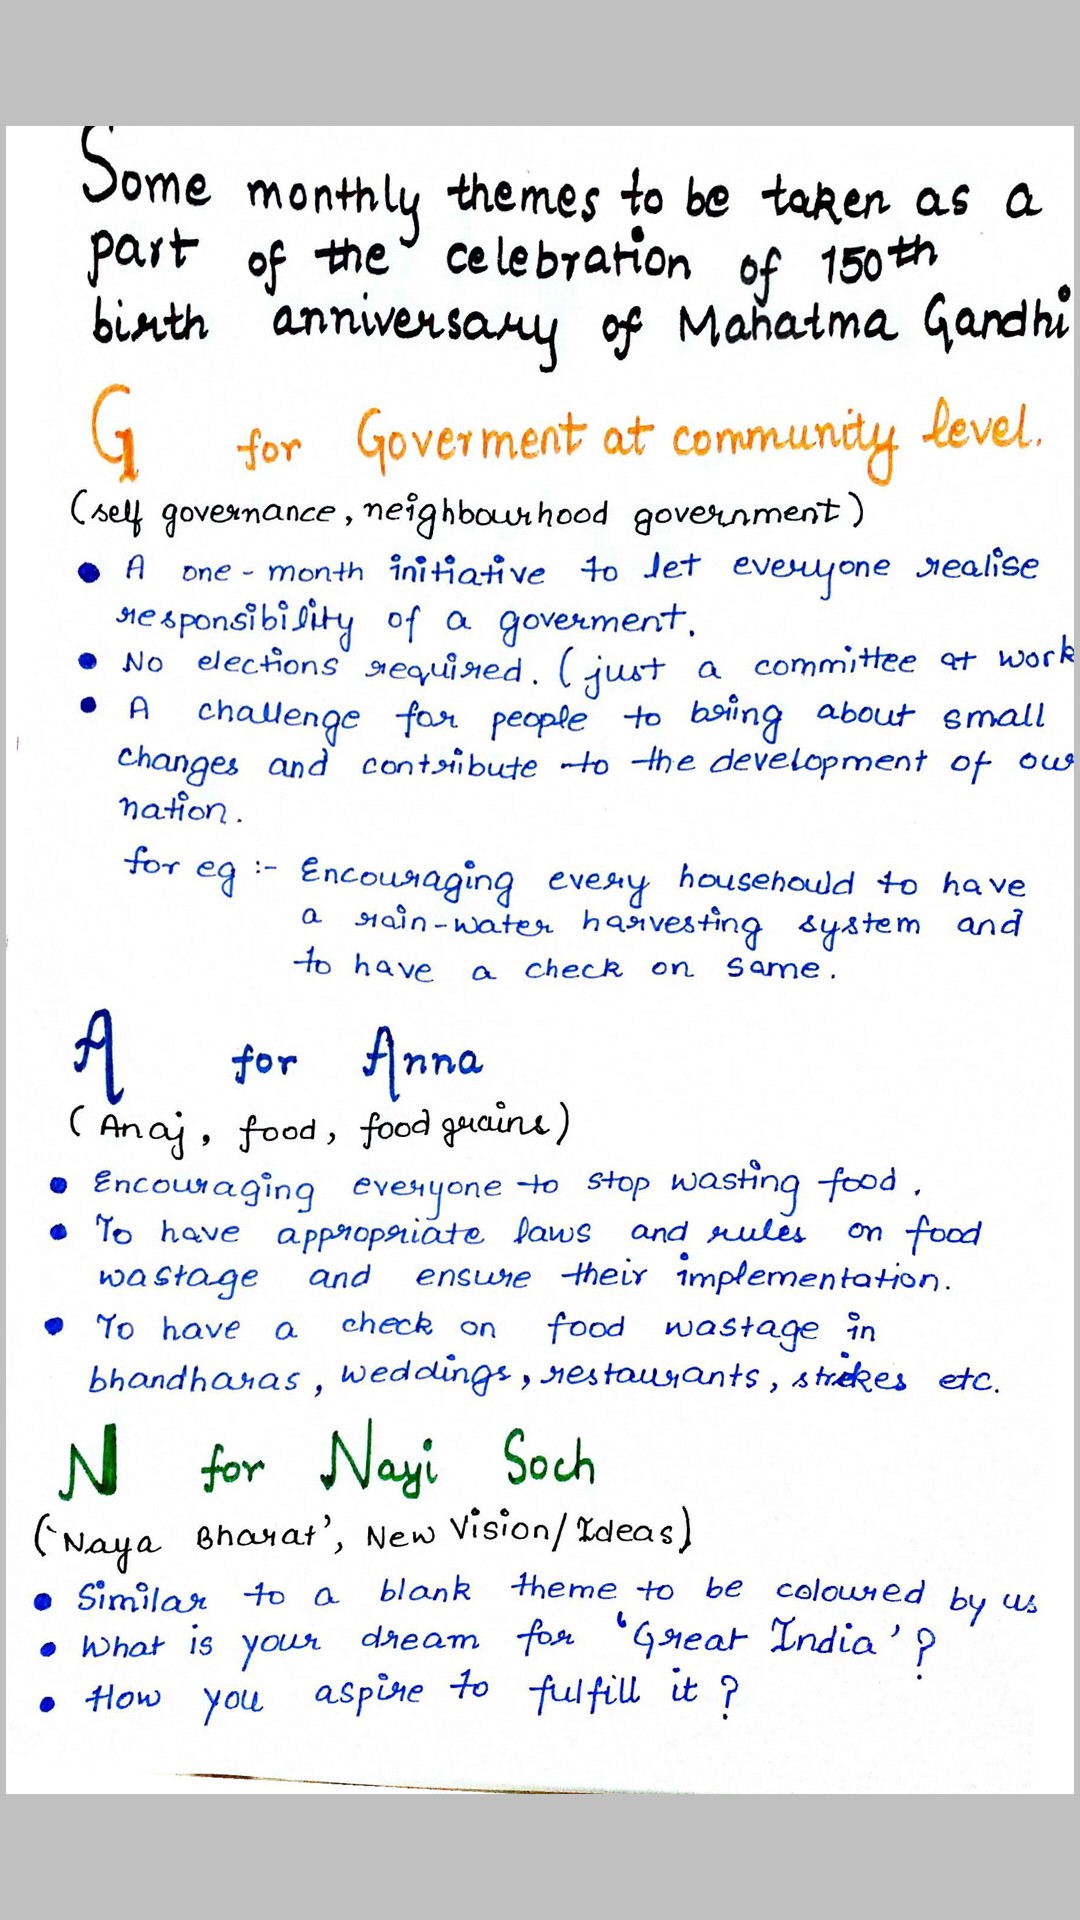 Some monthly themes to be taken as a
part of the celebration of 150th
birth anniversary of Mahatma Gandhi
G for Goverment at community level.
(self governance, neighbourhood government)
• A one-month initiative to let everyone realise
responsibility of a goverment.
• No elections required. (just a committee at work
• A challenge for people to bring about small
changes and contribute to the development of our
nation.
for eg :- Encouraging every househould to have
a rain-water harvesting system and
to have a check on same.
A for Anna
(Anaj, food, food grains)
• Encouraging everyone to stop wasting food.
• To have appropriate laws and rules on food
wastage and ensure their implementation.
• To have a check on food wastage in
bhandharas, weddings, restaurants, strikes etc.
N for Nayi Soch
('Naya Bharat', New Vision/Ideas)
• Similar to a blank theme to be coloured by us
• What is your dream for 'Great India'?
• How you aspire to fulfill it?